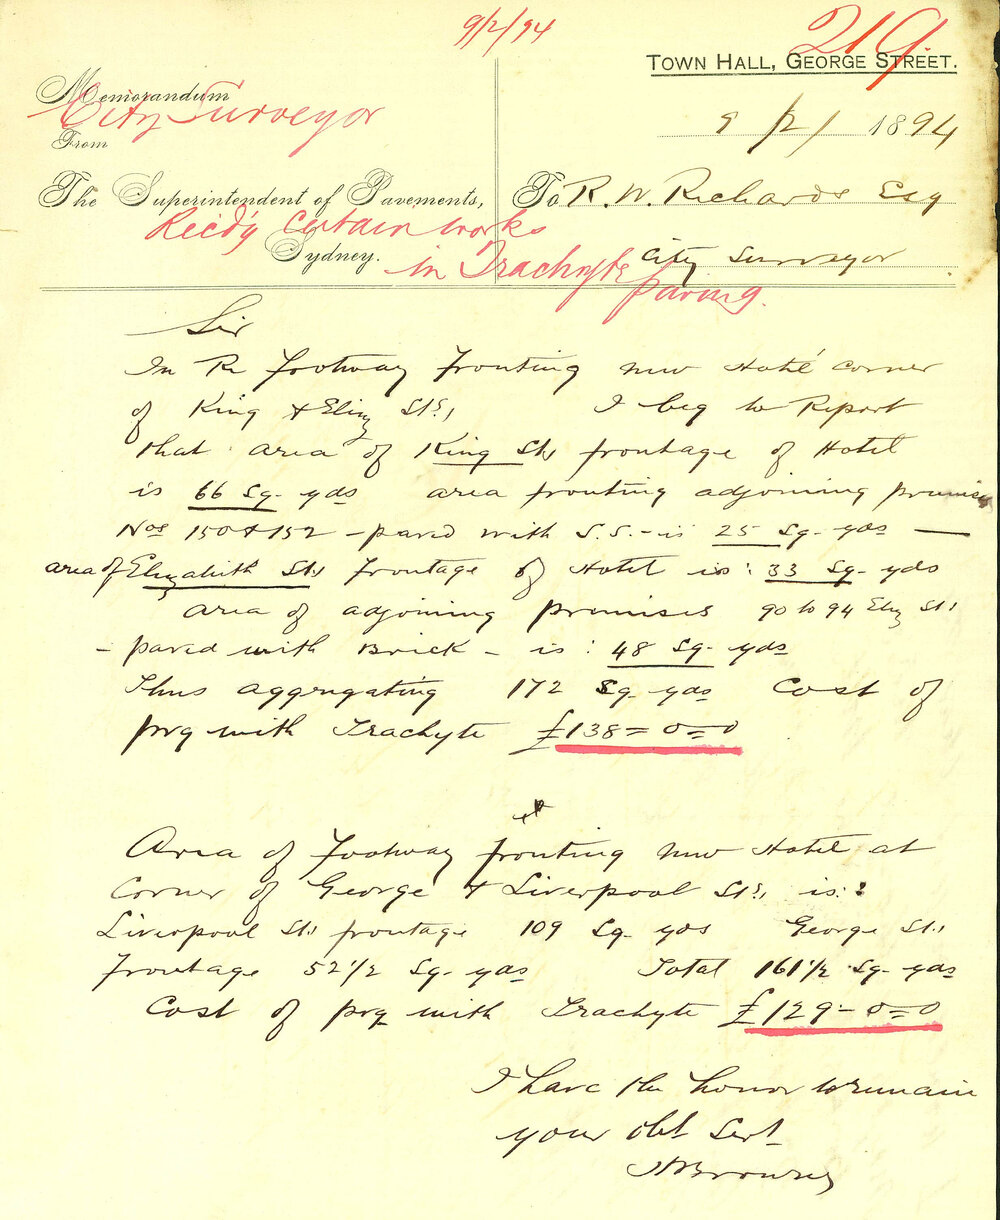 9/2/94
219.
TOWN HALL, GEORGE STREET.
Memorandum
City Surveyor
From
9 / 2 / 1894
The Superintendent of Pavements,
To R. W. Richards Esq
certain works
Sydney.
City Surveyor
in Trachyte
paving.
Sir
In Re Footway Fronting new Hotel corner
of King & Eliz Sts, I beg to Report
that area of King St, frontage of Hotel
is 66 Sq. yds area fronting adjoining premises
Nos 150 & 152 - paved with S.S. - is 25 Sq. yds —
area of Elizabeth St, Frontage of Hotel is: 33 Sq. yds
area of adjoining premises 90 to 94 Eliz St,
- paved with Brick - is: 48 Sq. yds
Thus aggregating 172 Sq. yds Cost of
pvg with Trachyte £138=0=0
Area of Footway fronting new Hotel at
Corner of George & Liverpool Sts, is:
Liverpool St, frontage 109 Sq. yds George St,
Frontage 52 1/2 Sq. yds Total 161 1/2 Sq. yds
Cost of pvg with Trachyte £129-0=0
I have the honor to remain
your obt Servt